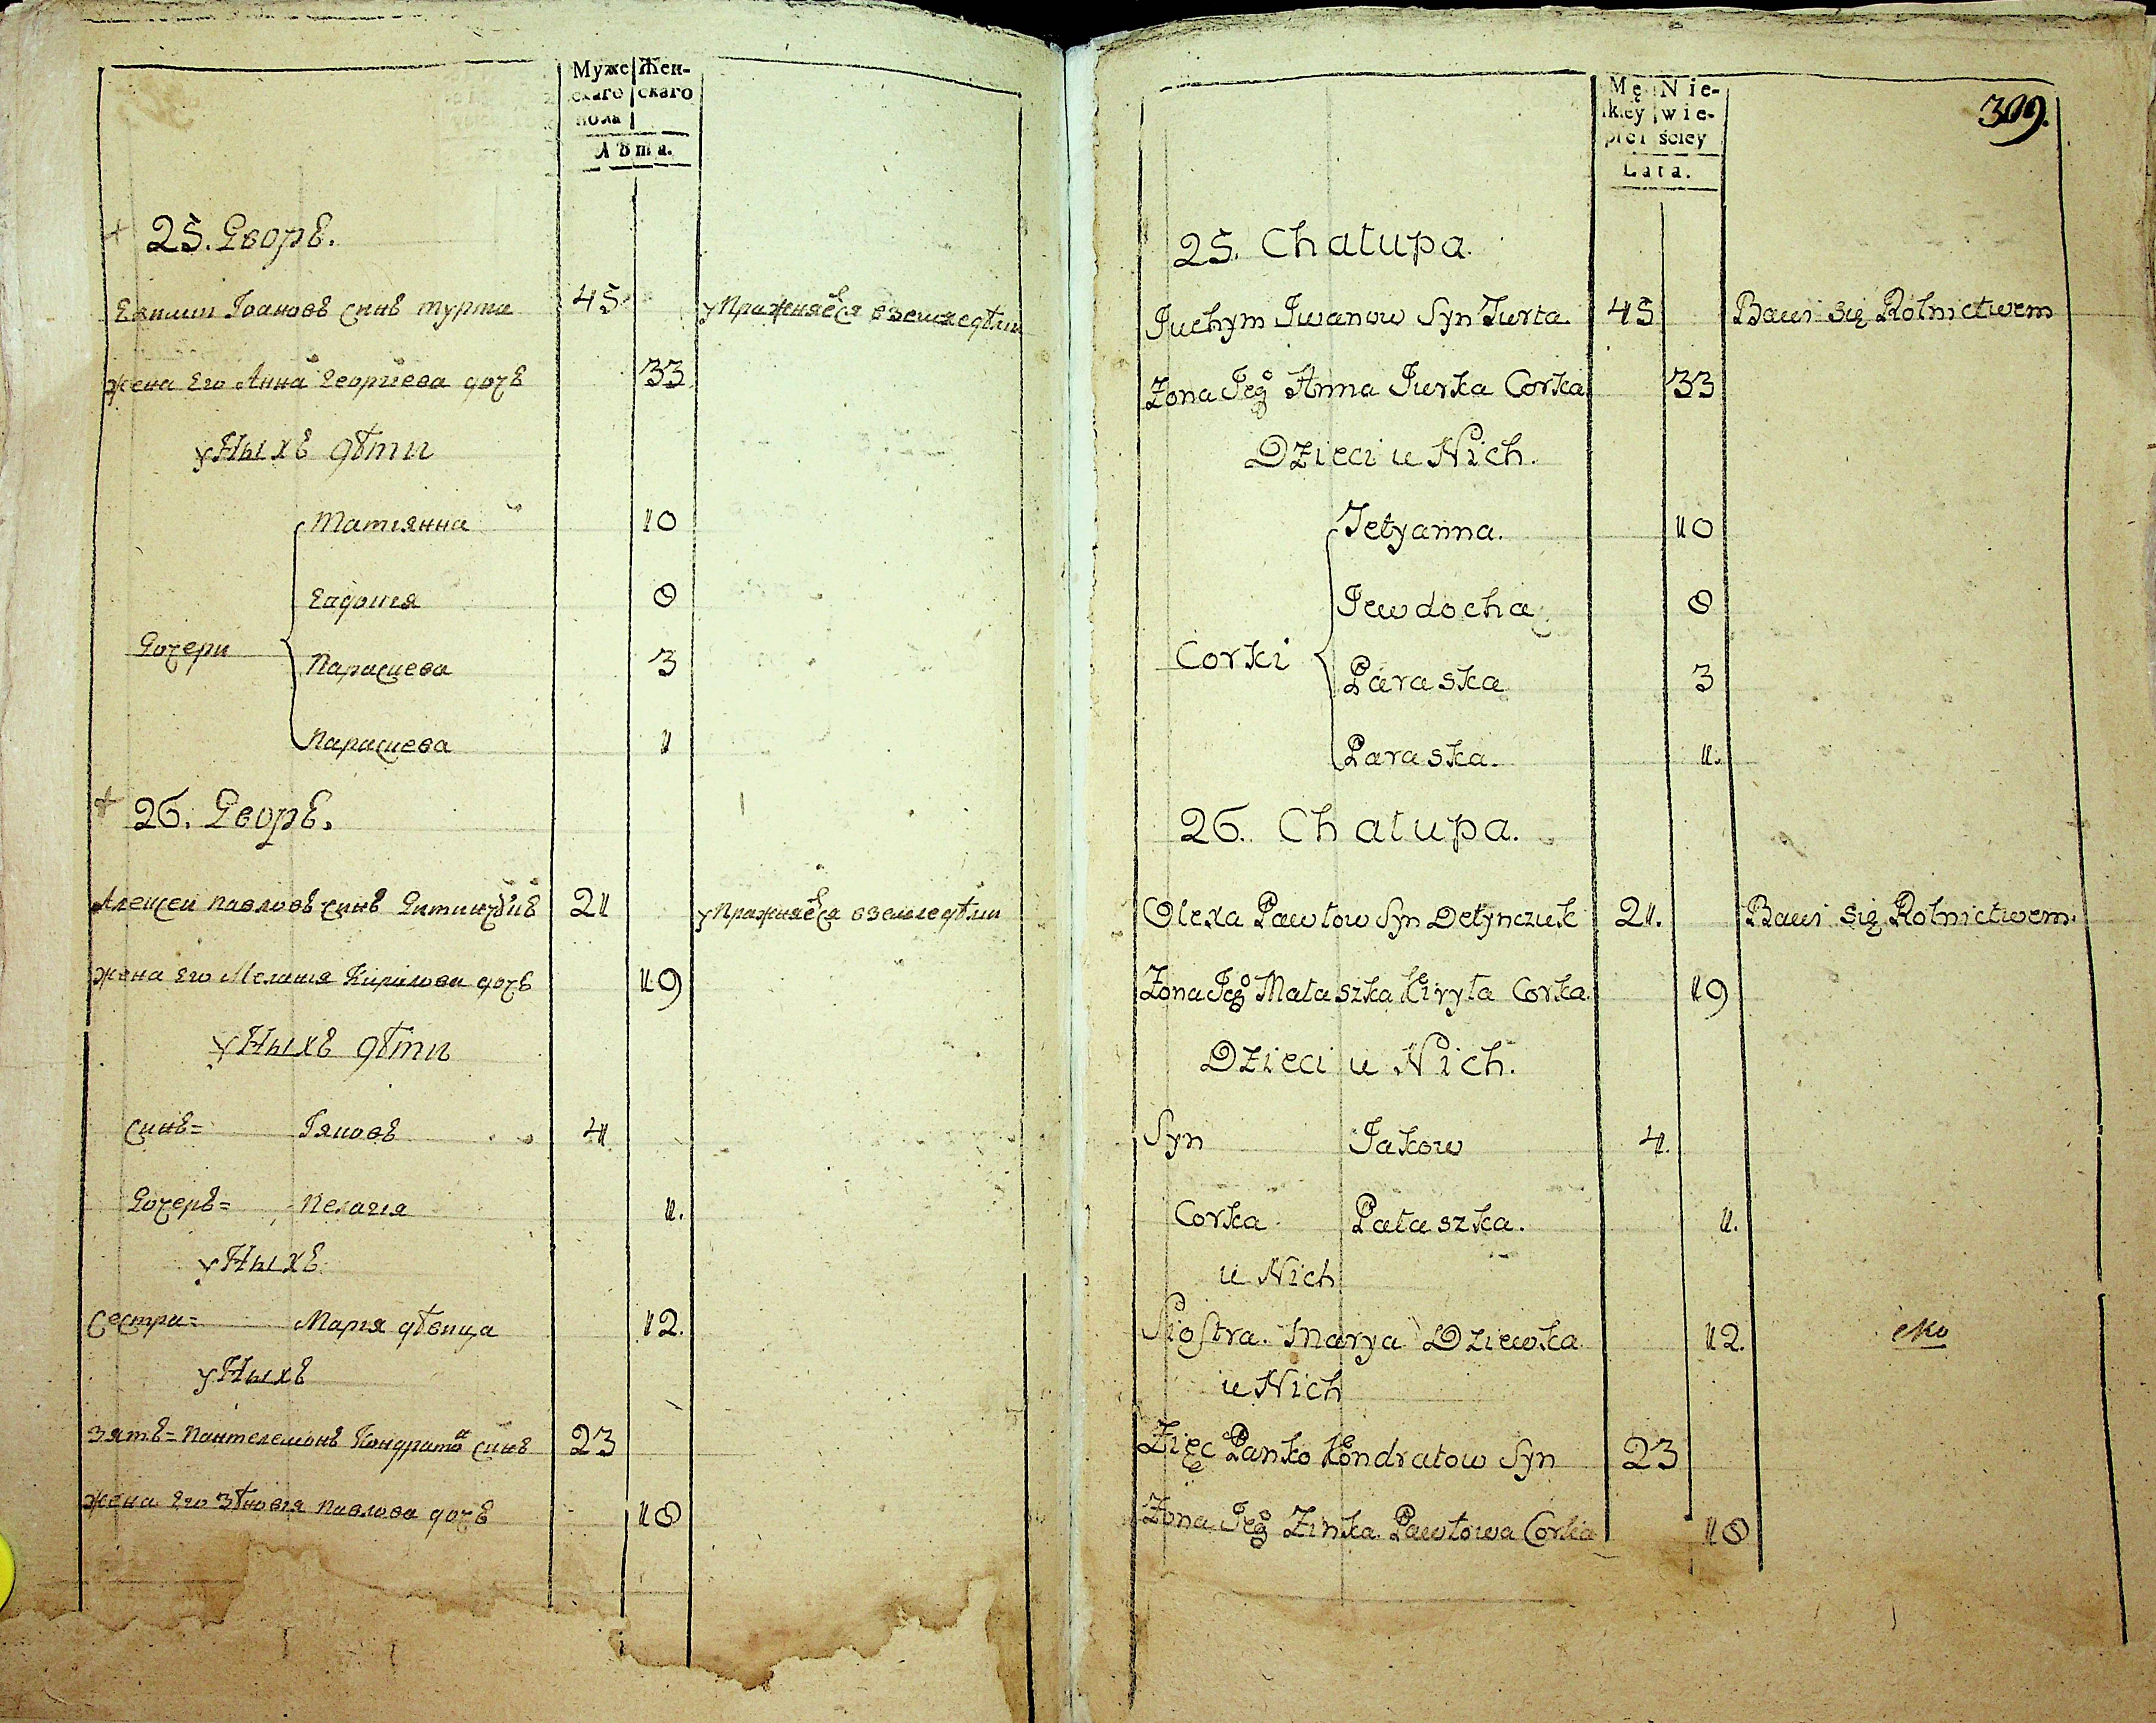 Муже Жен-
скаго скаго
пола
Лѣта.
25. Дворъ.
Евѳим Іоановъ синъ Турта 45 упражняется вземледѣлии
жена его Анна Георгіева дочъ 33
уНыхъ дѣти
Дочери
Татіянна 10
Евдокія 8
Параскева 3
Параскева 1
26. Дворъ.
Алексей Павловъ синъ 21 упражняется вземледѣлии
жена его Мелания Кирилова дочъ 19
уНыхъ дѣти
Синъ= Іяковъ 4
Дочеръ= Пелагія 1.
уНыхъ
Сестра= Марія дѣвица 12.
уНыхъ
Зятъ= Пантелемонъ Кондратов синъ 23
жена его Зѣновія Павлова дочъ 18
309.
Mę Nie-
skiey wie-
płci ściey
Lata.
25. Chałupa.
Juchym Iwanow Syn Turta. 45 Bawi się Rolnictwem
Żona Jego Anna Jurka Corka 33
Dzieci u Nich.
Corki
Tetyanna. 10
Jewdocha 8
Paraska 3
Paraska. 1.
26. Chałupa.
Olexa Pawłow Syn Detynczuk 21. Bawi się Rolnictwem.
Żona Jego Małaszka Kiryła Corka. 19
Dzieci u Nich.
Syn Jakow 4.
Corka Pałaszka. 1.
u Nich
Siostra. Marya Dziewka 12.
u Nich
Zięc Panko Kondratow Syn 23
Żona Jego Zinka Pawłowa Corka 18